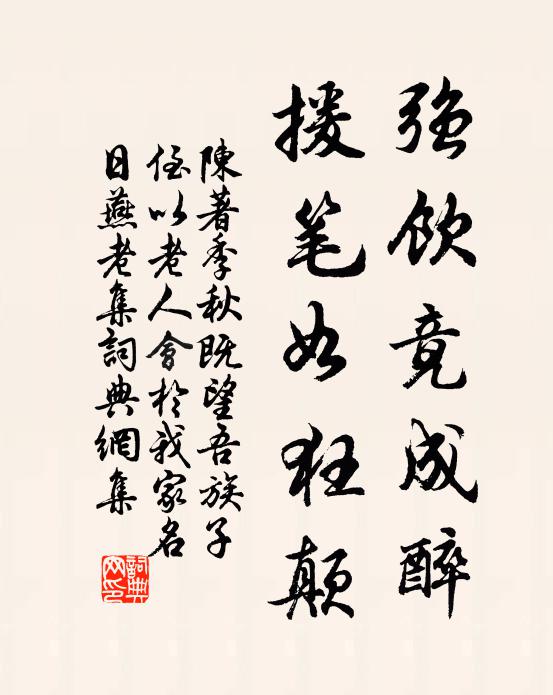 强飲竟成醉
援笔如狂颠
陳著季秋既望吾族子
侄以老人會於我家名
日燕老集詞典網集
詞典
网印